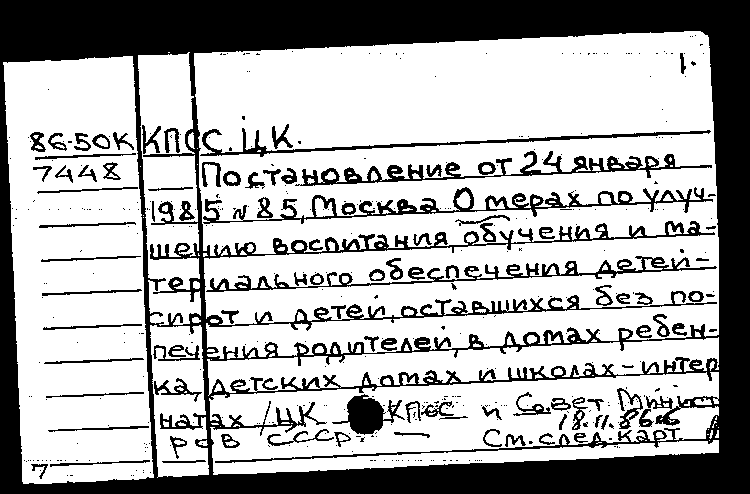 1.
86-50К КПСС. ЦК.
7448 Постановление от 24 января
1985 N 85, Москва О мерах по улуч-
шению воспитания, обучения и ма-
териального обеспечения детей-
сирот и детей, оставшихся без по-
печения родителей, в домах ребен-
ка, детских домах и школах-интер
натах /ЦК КПСС и Совет Минист
ров СССР. —
18.11.86
См. след. карт
7